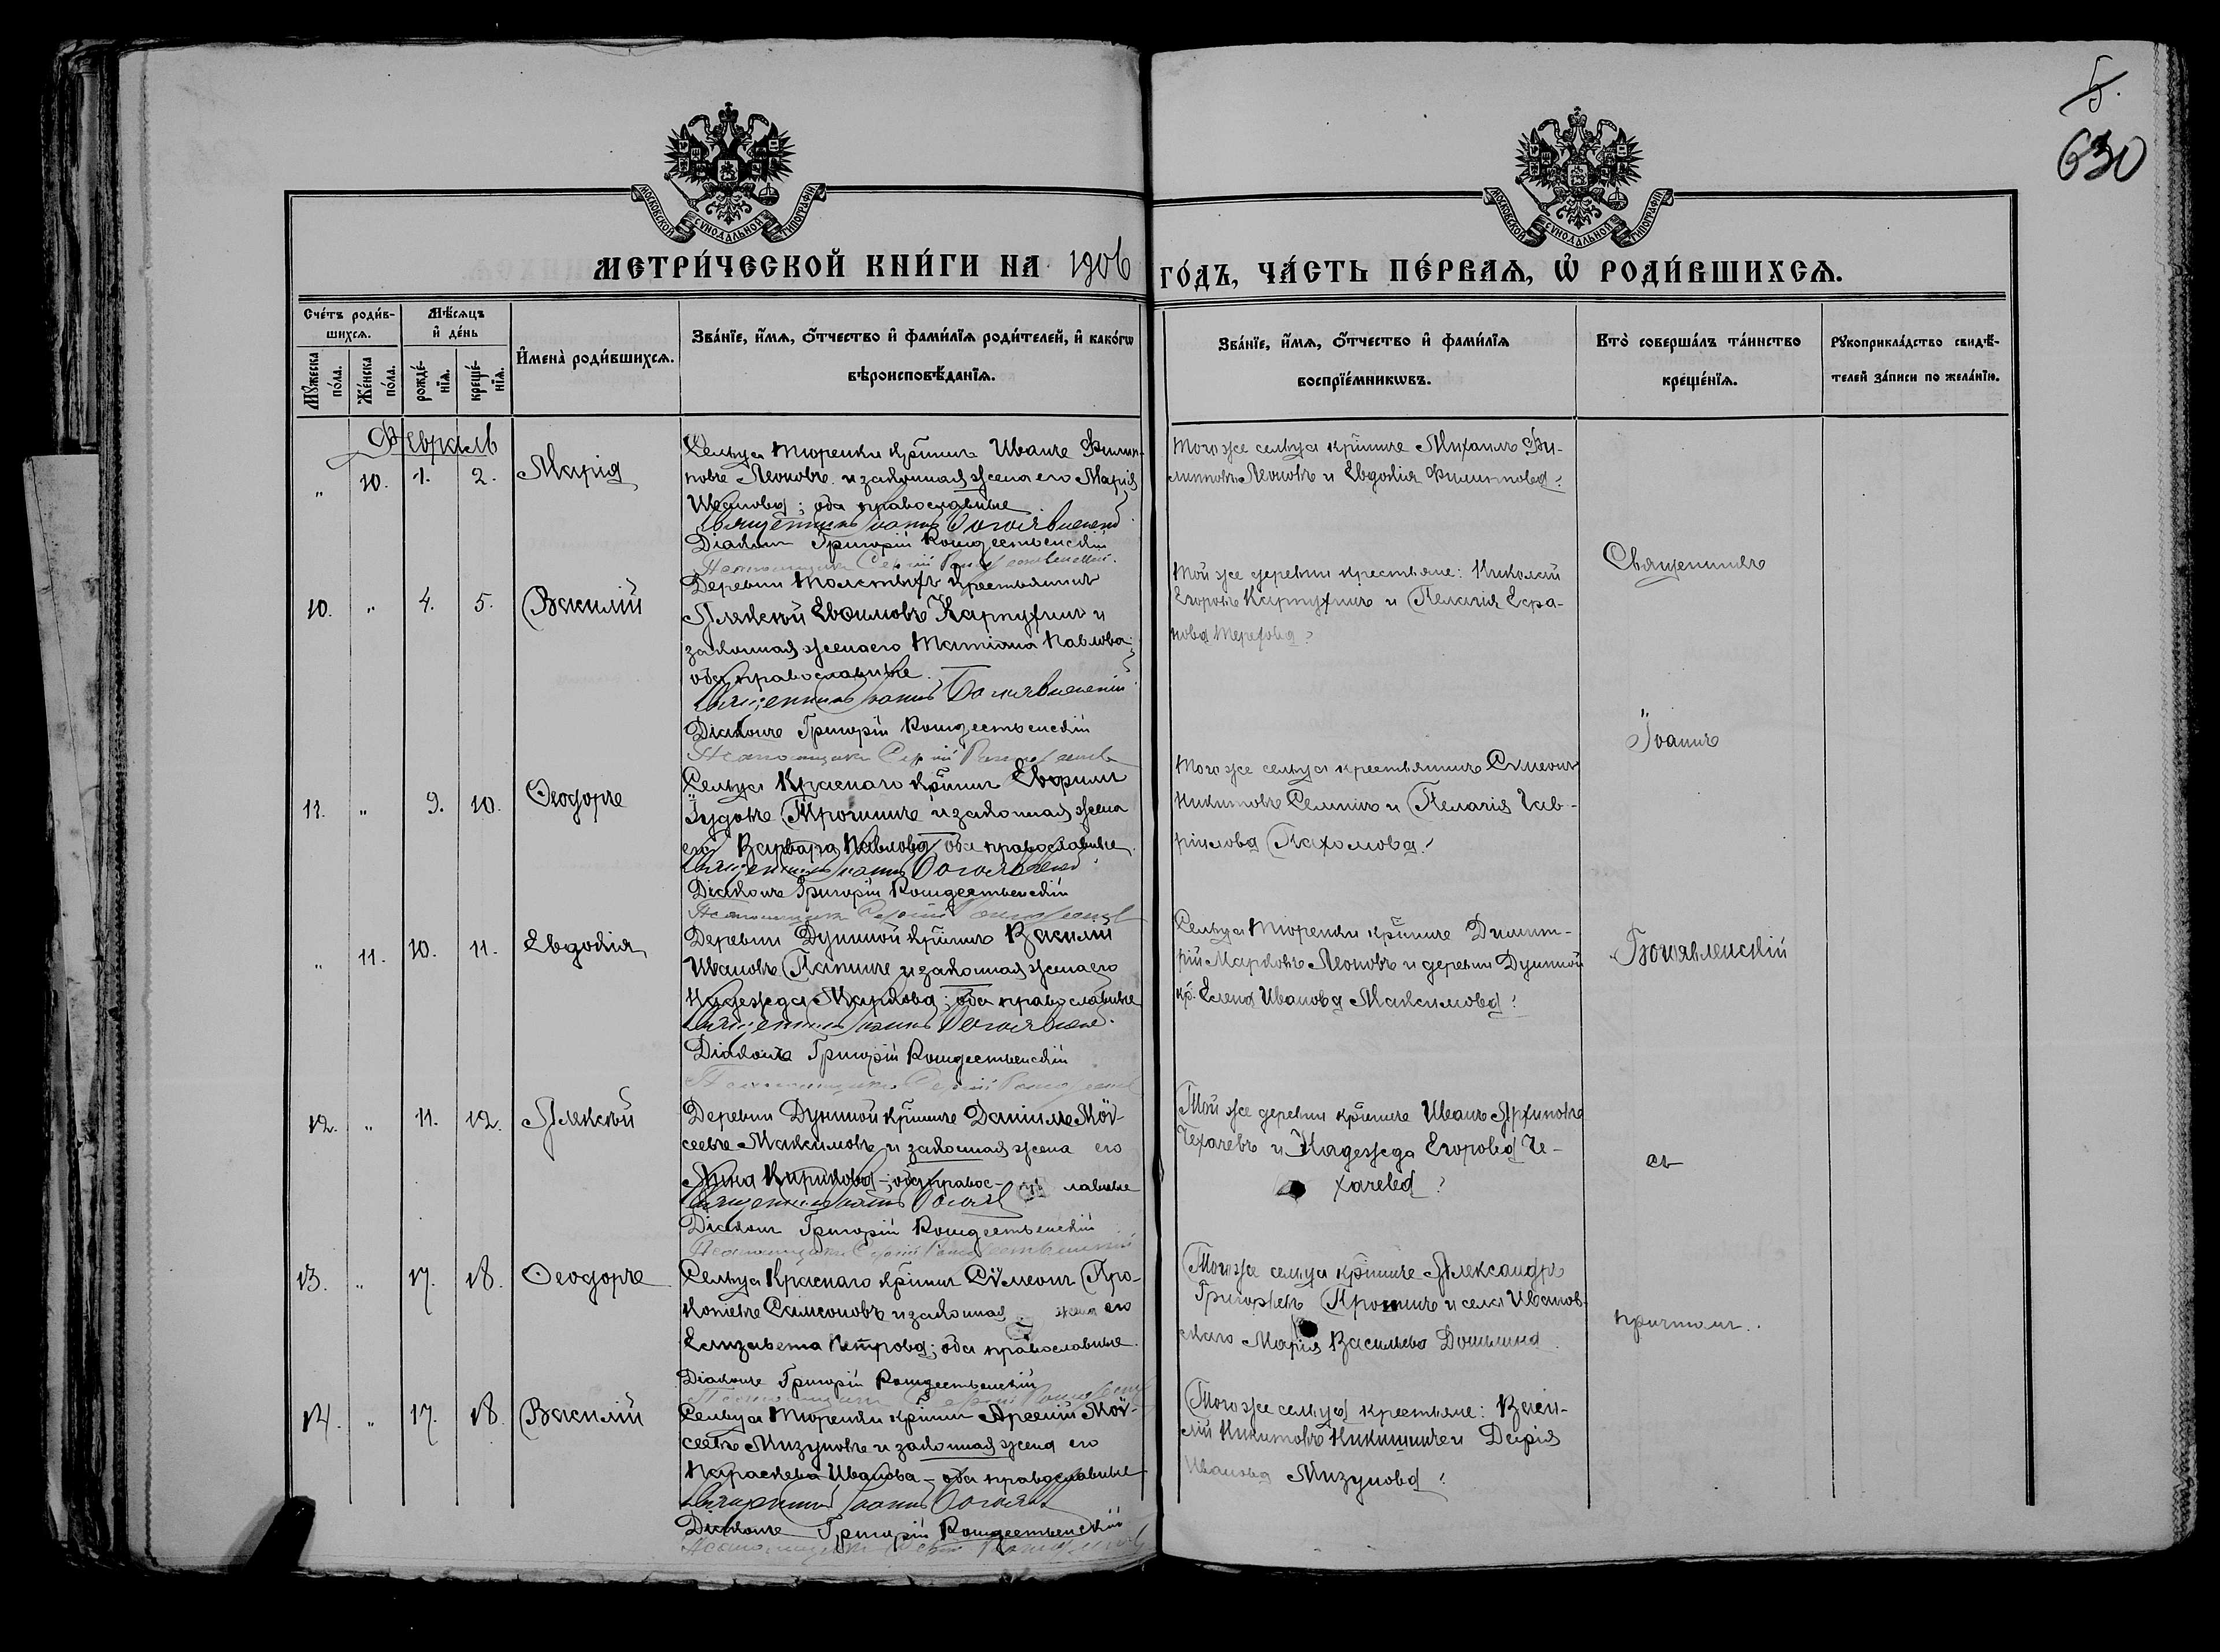 5.
630
МОСКОВСКОЙ СѴНОДАЛЬНОЙ ТИПОГРАФІИ
МОСКОВСКОЙ СѴНОДАЛЬНОЙ ТИПОГРАФІИ
МЕТРИ́ЧЕСКОЙ КНИ́ГИ НА 1906 ГО́ДЪ, ЧА́СТЬ ПЕ́РВАѦ, Ѡ҆ РОДИ́ВШИХСѦ.
Сче́тъ роди́в-
шихсѧ.
Мѣ́сѧцъ
и҆ де́нь
Мꙋ́жеска
по́ла.
Же́нска
по́ла.
рожде́-
нїѧ.
креще́-
нїѧ.
И҆мена̀ роди́вшихсѧ.
Зва́нїе, и҆́мѧ, ѻ҆́тчество и҆ фами́лїѧ роди́телей, и҆ како́гѡ
вѣроисповѣ́данїѧ.
Зва́нїе, и҆́мѧ, ѻ҆́тчество и҆ фами́лїѧ
воспрїе́мникѡвъ.
Кто̀ соверша́лъ та́инство
креще́нїѧ.
Рꙋкоприкла́дство свидѣ́-
телей за́писи по жела́нїю.
Февраль
" 10. 1. 2. Марія
Сельца Тюренки кр-нинъ Иванъ Филип-
повъ Леоновъ и законная жена его Марія
Иванова; оба православные
Священникъ Іоаннъ Богоявленск
Діаконъ Григорій Рождественскій
Псаломщикъ Сергій Рождественскій.
Того же сельца кр-нинъ Михаилъ Фи-
липповъ Леоновъ и Евдокія Филиппова
10. " 4. 5. Василій
Деревни Толстыхъ крестьянинъ
Алексѣй Евѳимовъ Карпухинъ и
законная жена его Татіана Павлова;
оба православные.
Священникъ Іоаннъ Богоявленскій
Діаконъ Григорій Рождественскій
Псаломщикъ Сергій Рождеств
Той же деревни крестьяне: Николай
Егоровъ Карпухинъ и Пелагія
Терехова
11. " 9. 10. Ѳеодоръ
Сельца Краснаго кр-нинъ Евфимъ
Трошинъ и законная жена
его Варвара Павлова; оба православные
Священникъ Іоаннъ Богоявленс
Діаконъ Григорій Рождественскій
Псаломщикъ Сергій Рождеств
Того же сельца крестьянинъ Сѵмеонъ
Никитовъ Селинъ и Пелагія Гав-
ріилова Пахомова
" 11. 10. 11. Евдокія
Деревни Дуниной кр-нинъ Василій
Ивановъ Папинъ и законная жена его
Надежда Маркова; оба православные
Священникъ Іоаннъ Богоявлен
Діаконъ Григорій Рождественскій
Псаломщикъ Сергій Рождеств
Сельца Тюренки кр-нинъ Димит-
рій Марковъ Леоновъ и деревни Дуниной
кр. Елена Иванова Максимова
12. " 11. 12. Алексѣй
Деревни Дуниной кр-нинъ Даніилъ Моѵ-
сеевъ Максимовъ и законная жена его
Анна Кирилова; оба правос- лавные
Священникъ Іоаннъ Богоявл
Діаконъ Григорій Рождественскій
Псаломщикъ Сергій Рождественскій
Той же деревни кр-нинъ Иванъ Архиповъ
Чехачевъ и Надежда Егорова Че-
хачева
13. " 17. 18. Ѳеодоръ
Сельца Краснаго кр-нинъ Сѵмеонъ Про-
копіевъ Самсоновъ и законная жена его
Елизавета Петрова; оба православные.
Діаконъ Григорій Рождественскій
Псаломщикъ Сергій Рождеств
Того же сельца кр-нинъ Александръ
Григорьевъ Трошинъ и села Иванов-
скаго Марія Васильева
14. " 17. 18. Василій
Сельца Тюренки кр-нинъ Арсеній Моѵ-
сеевъ Мизуновъ и законная жена его
Параскева Иванова – оба православные
Священникъ Іоаннъ Богоявл
Діаконъ Григорій Рождественскій
Псаломщикъ Сергій Рождеств
Того же сельца крестьяне: Васи-
лій Никитовъ Никишинъ и Дарія
Иванова Мизунова
Священникъ
Іоаннъ
Богоявленскій
съ
причтомъ.